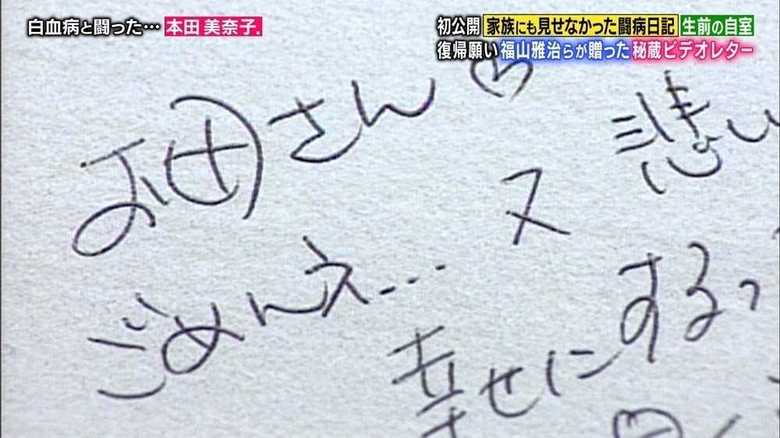 白血病と闘った… 本田 美奈子.
初公開 家族にも見せなかった闘病日記 生前の自室
復帰願い 福山雅治らが贈った 秘蔵ビデオレター
お母さん♡
ごめんネ…
又 悲
幸せにする